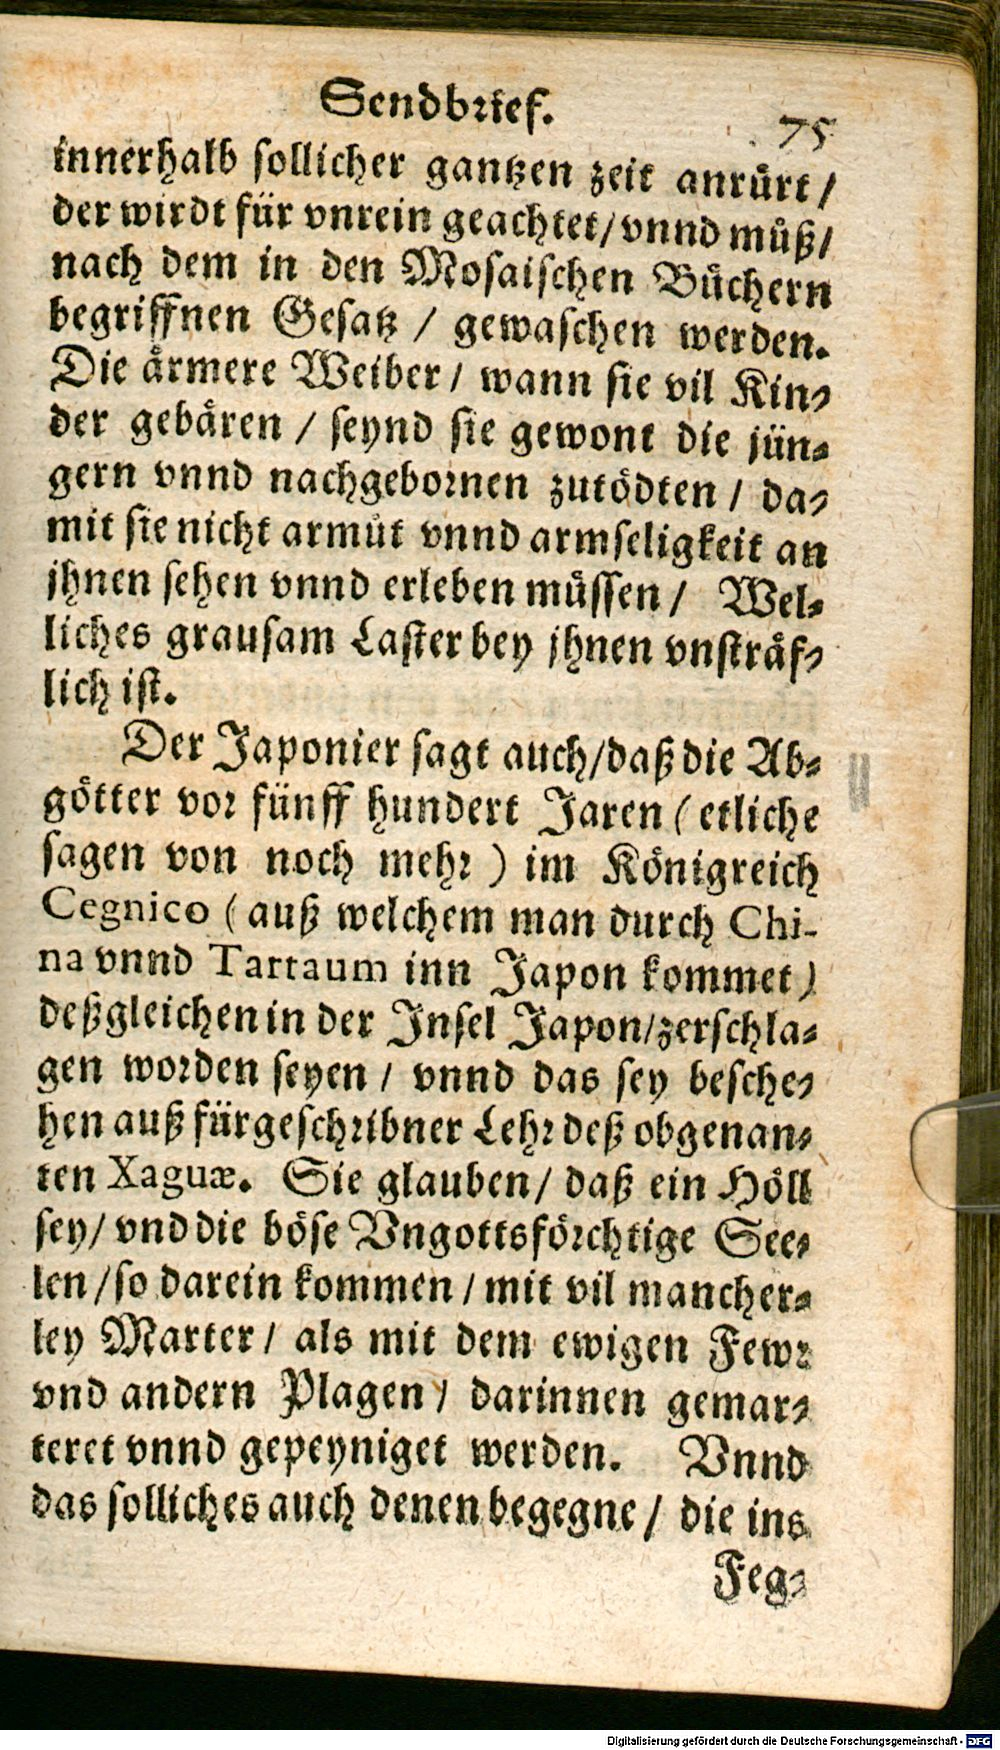 Sendbrief.
75
innerhalb sollicher gantzen zeit anrůrt /
der wirdt für vnrein geachtet/ vnnd můß/
nach dem in den Mosaischen Bůchern
begriffnen Gesatz / gewaschen werden.
Die ärmere Weiber / wann sie vil Kin⸗
der gebären / seynd sie gewont die jün⸗
gern vnnd nachgebornen zutödten / da⸗
mit sie nicht armůt vnnd armseligkeit an
jhnen sehen vnnd erleben můssen / Wel⸗
liches grausam Laster bey jhnen vnsträf⸗
lich ist.
Der Japonier sagt auch/daß die Ab⸗
götter vor fünff hundert Jaren ( etliche
sagen von noch mehr ) im Königreich
Cegnico ( auß welchem man durch Chi-
na vnnd Tartaum inn Japon kommet )
deßgleichen in der Insel Japon/zerschla⸗
gen worden seyen / vnnd das sey besche⸗
hen auß fürgeschribner Lehr deß obgenan⸗
ten Xaguæ. Sie glauben / daß ein Höll
sey/ vnd die böse Vngottsförchtige See⸗
len /so darein kommen / mit vil mancher⸗
ley Marter / als mit dem ewigen Fewr
vnd andern Plagen / darinnen gemar⸗
teret vnnd gepeyniget werden. Vnnd
das solliches auch denen begegne / die ins
Feg⸗
Digitalisierung gefördert durch die Deutsche Forschungsgemeinschaft - DFG